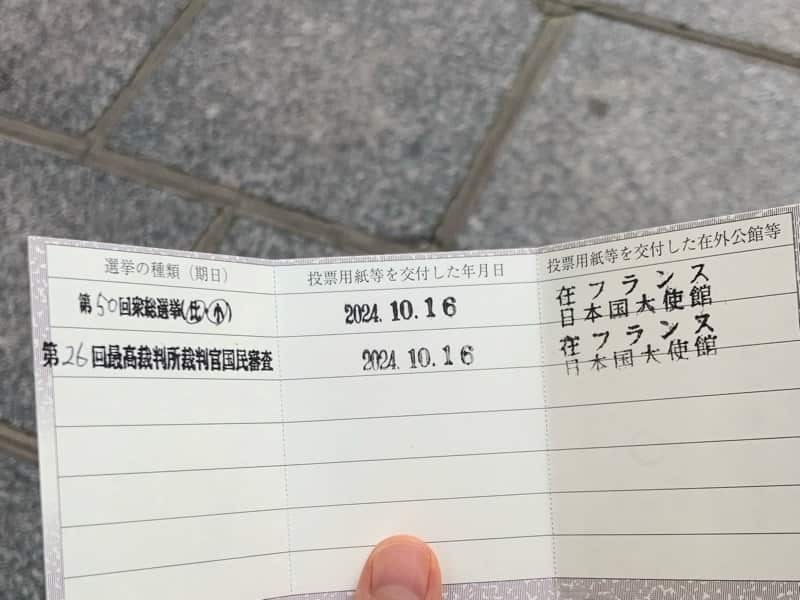 選挙の種類（期日）
投票用紙等を交付した年月日
投票用紙等を交付した在外公館等
第50回衆総選挙(比・小)
2024.10.16
在フランス
日本国大使館
第26回最高裁判所裁判官国民審査
2024.10.16
在フランス
日本国大使館